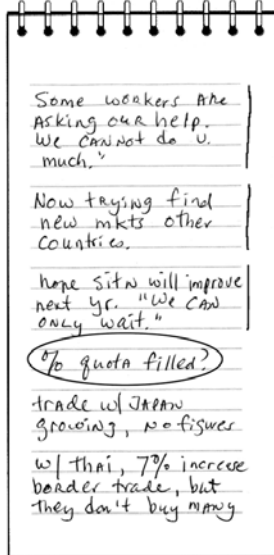 Some workers are
asking our help.
We cannot do v.
much."
Now trying find
new mkts other
countries.
hope sitn will improve
next yr. "We can
only wait."
% quota filled?
trade w/ Japan
growing, no figures
w/ Thai, 7% increase
border trade, but
they don't buy many